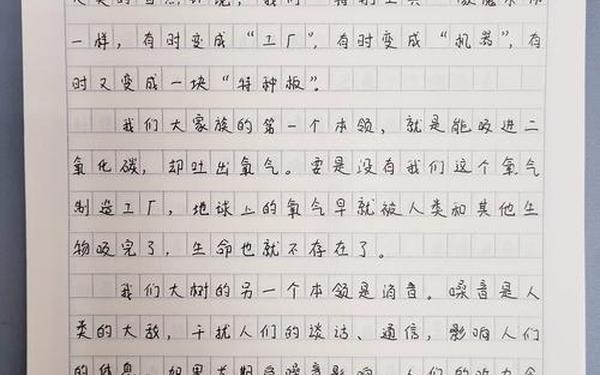 一样，有时变成“工厂”，有时变成“机器”，有
时又变成一块“特种板”。
我们大家族的第一个本领，就是能吸进二
氧化碳，却吐出氧气。要是没有我们这个氧气
制造工厂，地球上的氧气早就被人类和其他生
物吸完了，生命也就不存在了。
我们大树的另一个本领是消音。噪音是人
类的大敌，干扰人们的谈话、通信，影响人们